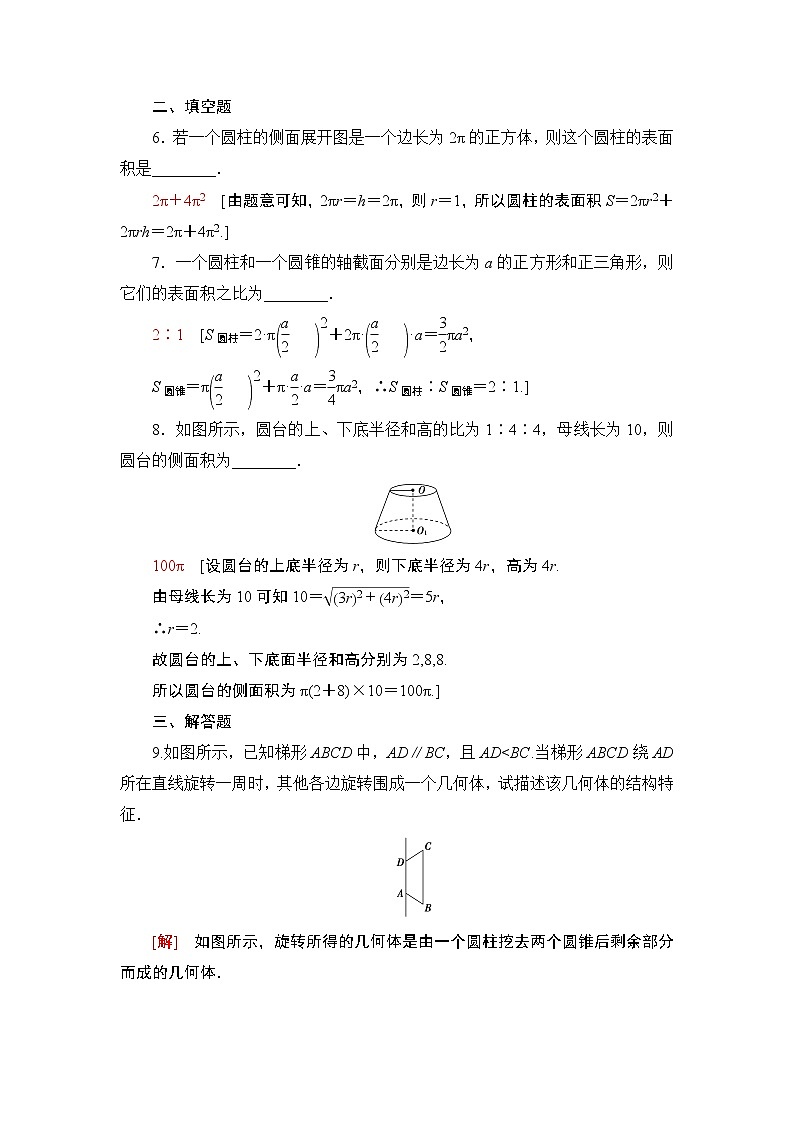 二、填空题
6．若一个圆柱的侧面展开图是一个边长为 2π 的正方体，则这个圆柱的表面
积是________．
2π＋4π² [由题意可知，2πr＝h＝2π，则 r＝1，所以圆柱的表面积 S＝2πr²＋
2πrh＝2π＋4π².]
7．一个圆柱和一个圆锥的轴截面分别是边长为 a 的正方形和正三角形，则
它们的表面积之比为________．
2∶1 [S圆柱＝2·π(a/2)²＋2π·(a/2)·a＝3/2πa²，
S圆锥＝π(a/2)²＋π·a/2·a＝3/4πa²，∴S圆柱∶S圆锥＝2∶1.]
8．如图所示，圆台的上、下底半径和高的比为 1∶4∶4，母线长为 10，则
圆台的侧面积为________．
O
O₁
100π [设圆台的上底半径为 r，则下底半径为 4r，高为 4r.
由母线长为 10 可知 10＝√((3r)²＋(4r)²)＝5r，
∴r＝2.
故圆台的上、下底面半径和高分别为 2,8,8.
所以圆台的侧面积为 π(2＋8)×10＝100π.]
三、解答题
9.如图所示，已知梯形 ABCD 中，AD∥BC，且 AD<BC.当梯形 ABCD 绕 AD
所在直线旋转一周时，其他各边旋转围成一个几何体，试描述该几何体的结构特
征．
C
D
A
B
[解] 如图所示，旋转所得的几何体是由一个圆柱挖去两个圆锥后剩余部分
而成的几何体．